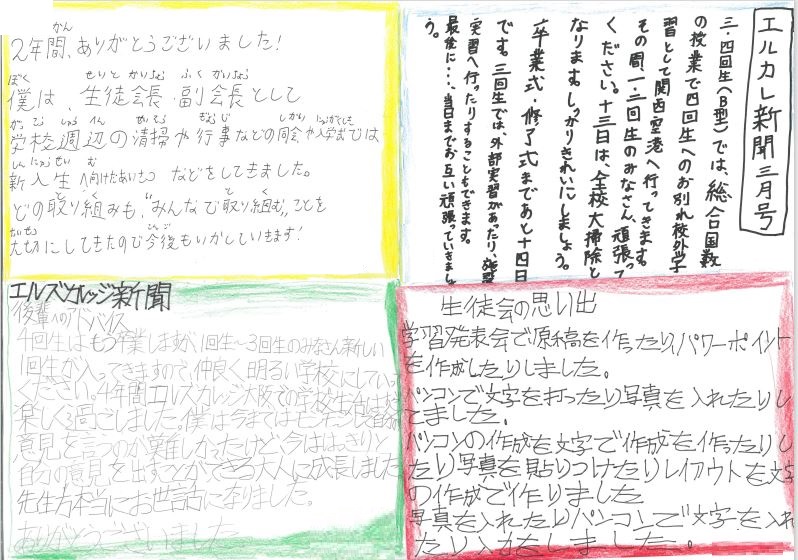 エルカレ新聞三月号
三・四回生(B型)では、総合国数
の授業で四回生へのお別れ校外学
習として関西空港へ行ってきます。
その間、一・二回生のみなさん、頑張って
ください。十三日は、全校大掃除と
なります。しっかりきれいにしましょう。
卒業式・修了式まであと十四日
です。三回生では、外部実習があったり、施設
実習へ行ったりすることもできます。
最後に・・・、当日までお互い頑張っていきましょ
う。
2年間、ありがとうございました!
僕は、生徒会長・副会長として
学校周辺の清掃や行事などの司会や入学式では
新入生へ向けたあいさつなどをしてきました。
どの取り組みも、"みんなで取り組む"ことを
大切にしてきたので今後もいかしていきます!
エルズカレッジ新聞
後輩へのアドバイス
4回生はもう卒業しますが、1回生~3回生のみなさん新しい
1回生が入ってきますので、仲良く明るい学校にしていって
ください。4年間エルズカレッジ大阪での学校生活は
楽しく過ごしました。僕は今までは
意見を言うのが難しかったけど、今ははっきりと
自分の意見を出すことができる大人に成長しました
先生方本当にお世話になりました。
ありがとうございました
生徒会の思い出
学習発表会で原稿を作ったり、パワーポイント
を作成したりしました。
パソコンで文字を打ったり写真を入れたりし
てました.
パソコンの作成を文字で作成を作ったりし
たり写真を貼りつけたりレイアウトを文字
の作成で作りました
写真を入れたり パソコンで文字を入れ
たり入力をしました.。